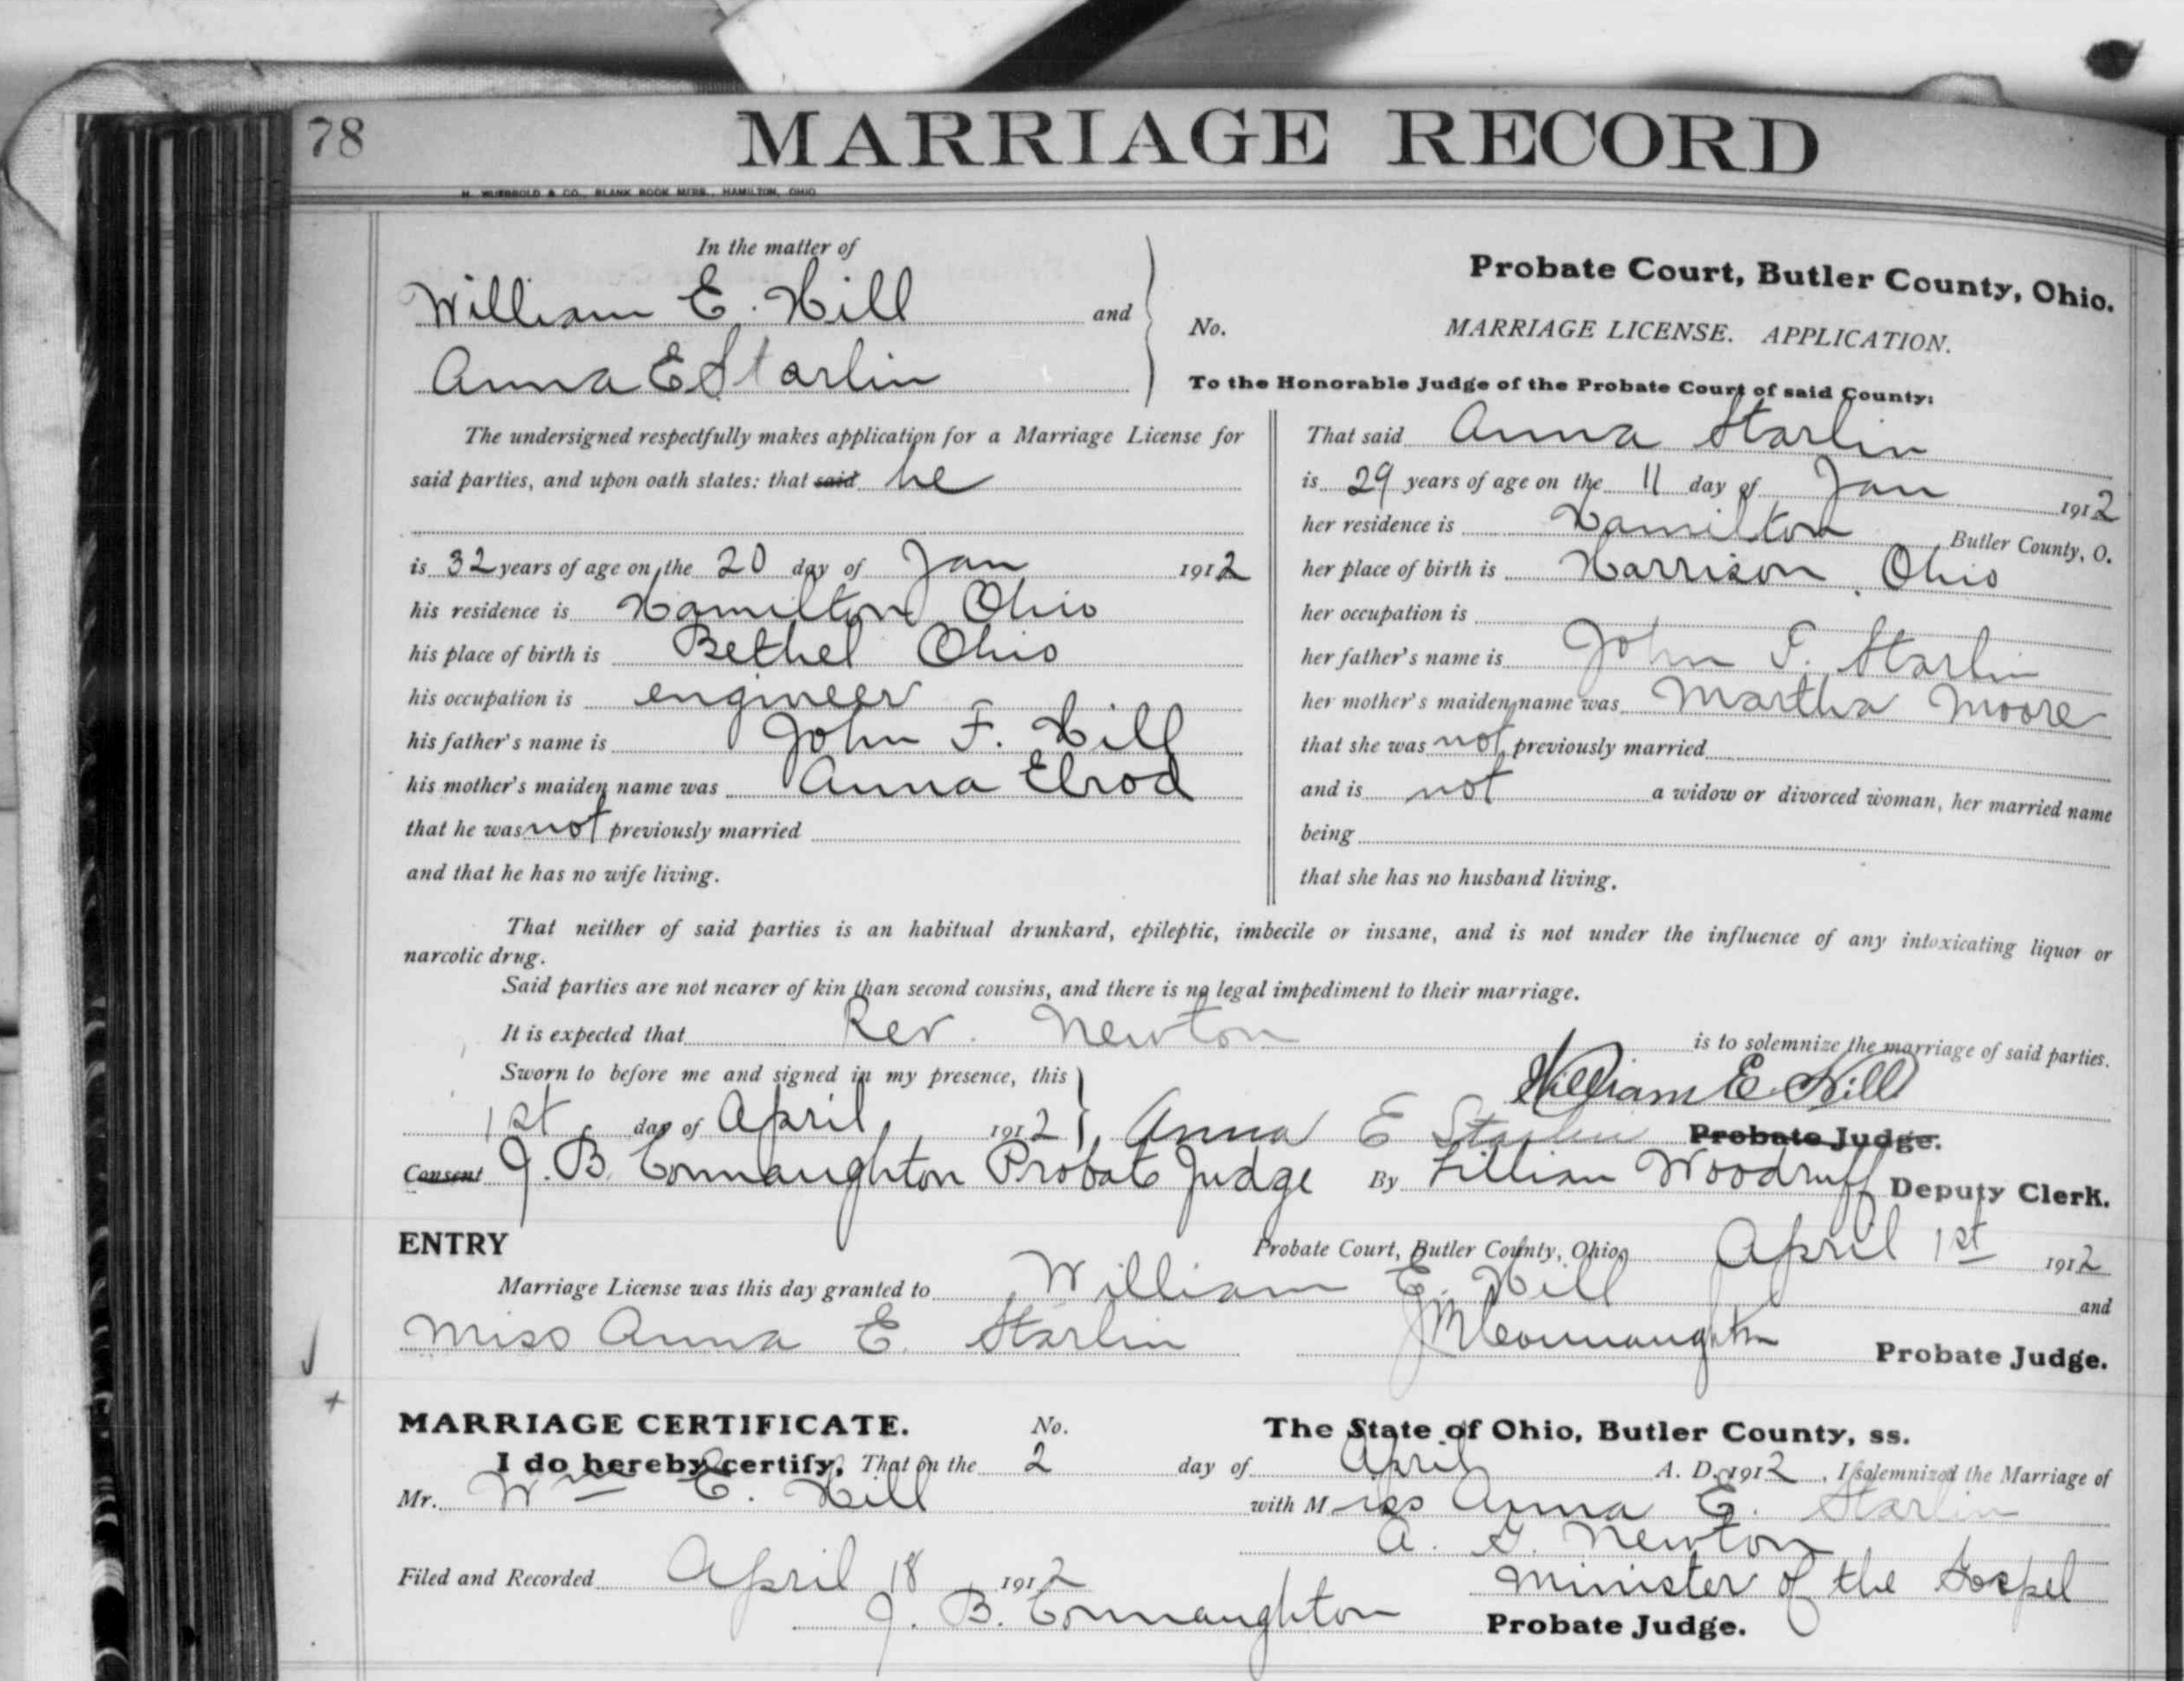 78
MARRIAGE RECORD
H. WUERBOLD & CO., BLANK BOOK MFRS., HAMILTON, OHIO
In the matter of
William E. Hill and
Anna E Starlin
Probate Court, Butler County, Ohio.
No. MARRIAGE LICENSE. APPLICATION.
To the Honorable Judge of the Probate Court of said County:
The undersigned respectfully makes application for a Marriage License for
said parties, and upon oath states: that said he
is 32 years of age on the 20 day of Jan 1912
his residence is Hamilton Ohio
his place of birth is Bethel Ohio
his occupation is engineer
his father's name is John F. Hill
his mother's maiden name was Anna Elrod
that he was not previously married
and that he has no wife living.
That said Anna Starlin
is 29 years of age on the 11 day of Jan 1912
her residence is Hamilton Butler County, O.
her place of birth is Harrison, Ohio
her occupation is
her father's name is John T. Starlin
her mother's maiden name was Martha Moore
that she was not previously married
and is not a widow or divorced woman, her married name
being
that she has no husband living.
That neither of said parties is an habitual drunkard, epileptic, imbecile or insane, and is not under the influence of any intoxicating liquor or
narcotic drug.
Said parties are not nearer of kin than second cousins, and there is no legal impediment to their marriage.
It is expected that Rev. Newton is to solemnize the marriage of said parties.
Sworn to before me and signed in my presence, this William E. Hill
1st day of April 1912 Anna E Starlin Probate Judge.
Consent J. B. Connaughton Probate Judge By Lillian Woodruff Deputy Clerk.
ENTRY Probate Court, Butler County, Ohio, April 1st 1912
Marriage License was this day granted to William E. Hill and
Miss Anna E. Starlin Connaughton Probate Judge.
MARRIAGE CERTIFICATE. No. The State of Ohio, Butler County, ss.
I do hereby certify, That on the 2 day of April A. D. 1912, I solemnized the Marriage of
Mr. Wm E. Hill with Miss Anna E. Starlin
A. Newton
Filed and Recorded April 18 1912 Minister of the Gospel
J. B. Connaughton Probate Judge.